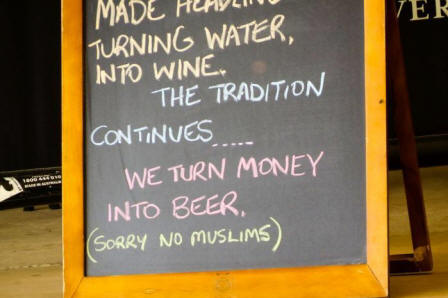 MADE HEADLINE
TURNING WATER,
INTO WINE.
THE TRADITION
CONTINUES.....
WE TURN MONEY
INTO BEER.
(SORRY NO MUSLIMS)
1800 444 010
MADE IN AUSTRALIA
VER